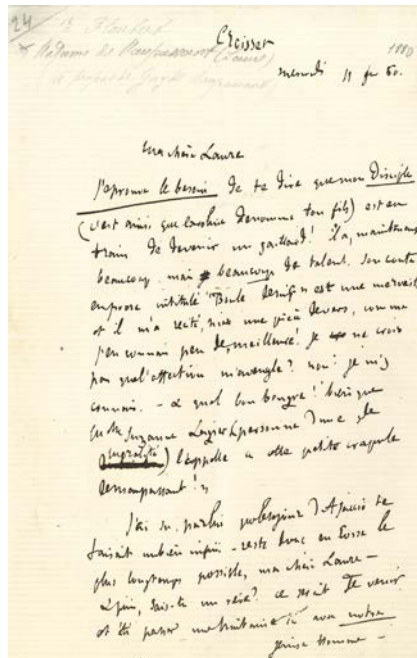 24
G. Flaubert
Madame de Maupassant (Laure)
à propos de Guy de Maupassant
Croisset
1880
mercredi 11 f 80.
ma chère Laure
J'éprouve le besoin de te dire que mon Disciple
(c'est ainsi que Caroline dénomme ton fils) est en
train de devenir un gaillard! il a, maintenant
beaucoup, mais beaucoup de talent. son conte
en prose intitulé "Boule de suif" est une merveille
et il m'a récité, hier une pièce de vers, comme
j'en connais peu de meilleure! je ne crois
pas que l'affection m'aveugle? non! je m'y
connais. - & quel bon bougre! bien que
Suzanne Lagier (personne d'une
) l'appelle
petite crapule
J'ai su par lui que le séjour d'Ajaccio te
faisait un bien infini - reste donc en Corse le
plus longtemps possible, ma chère Laure -
& puis, sais-tu un rêve? ce serait de venir
cet été passer une huitaine ici avec notre
jeune homme -